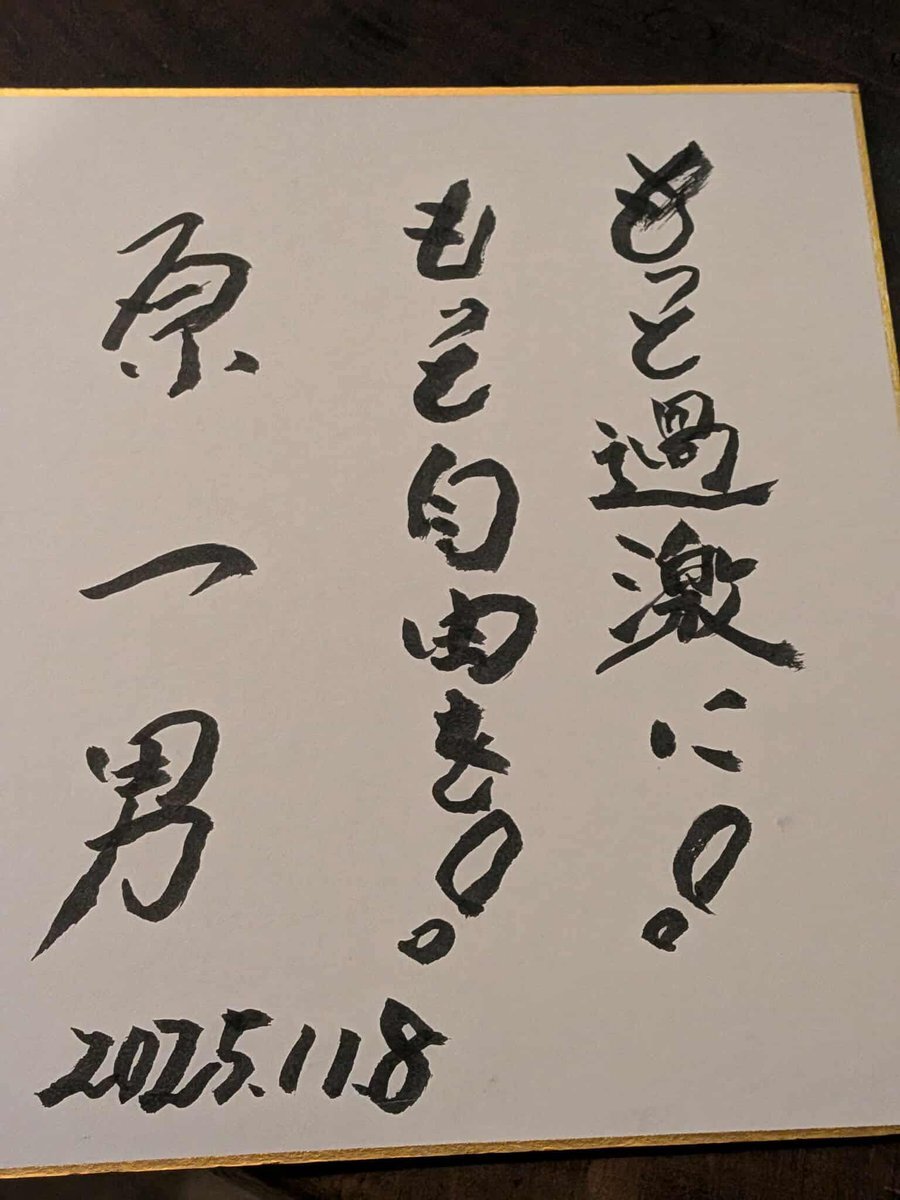 もっと過激に!
もっと自由を!
原一男
2025.11.8